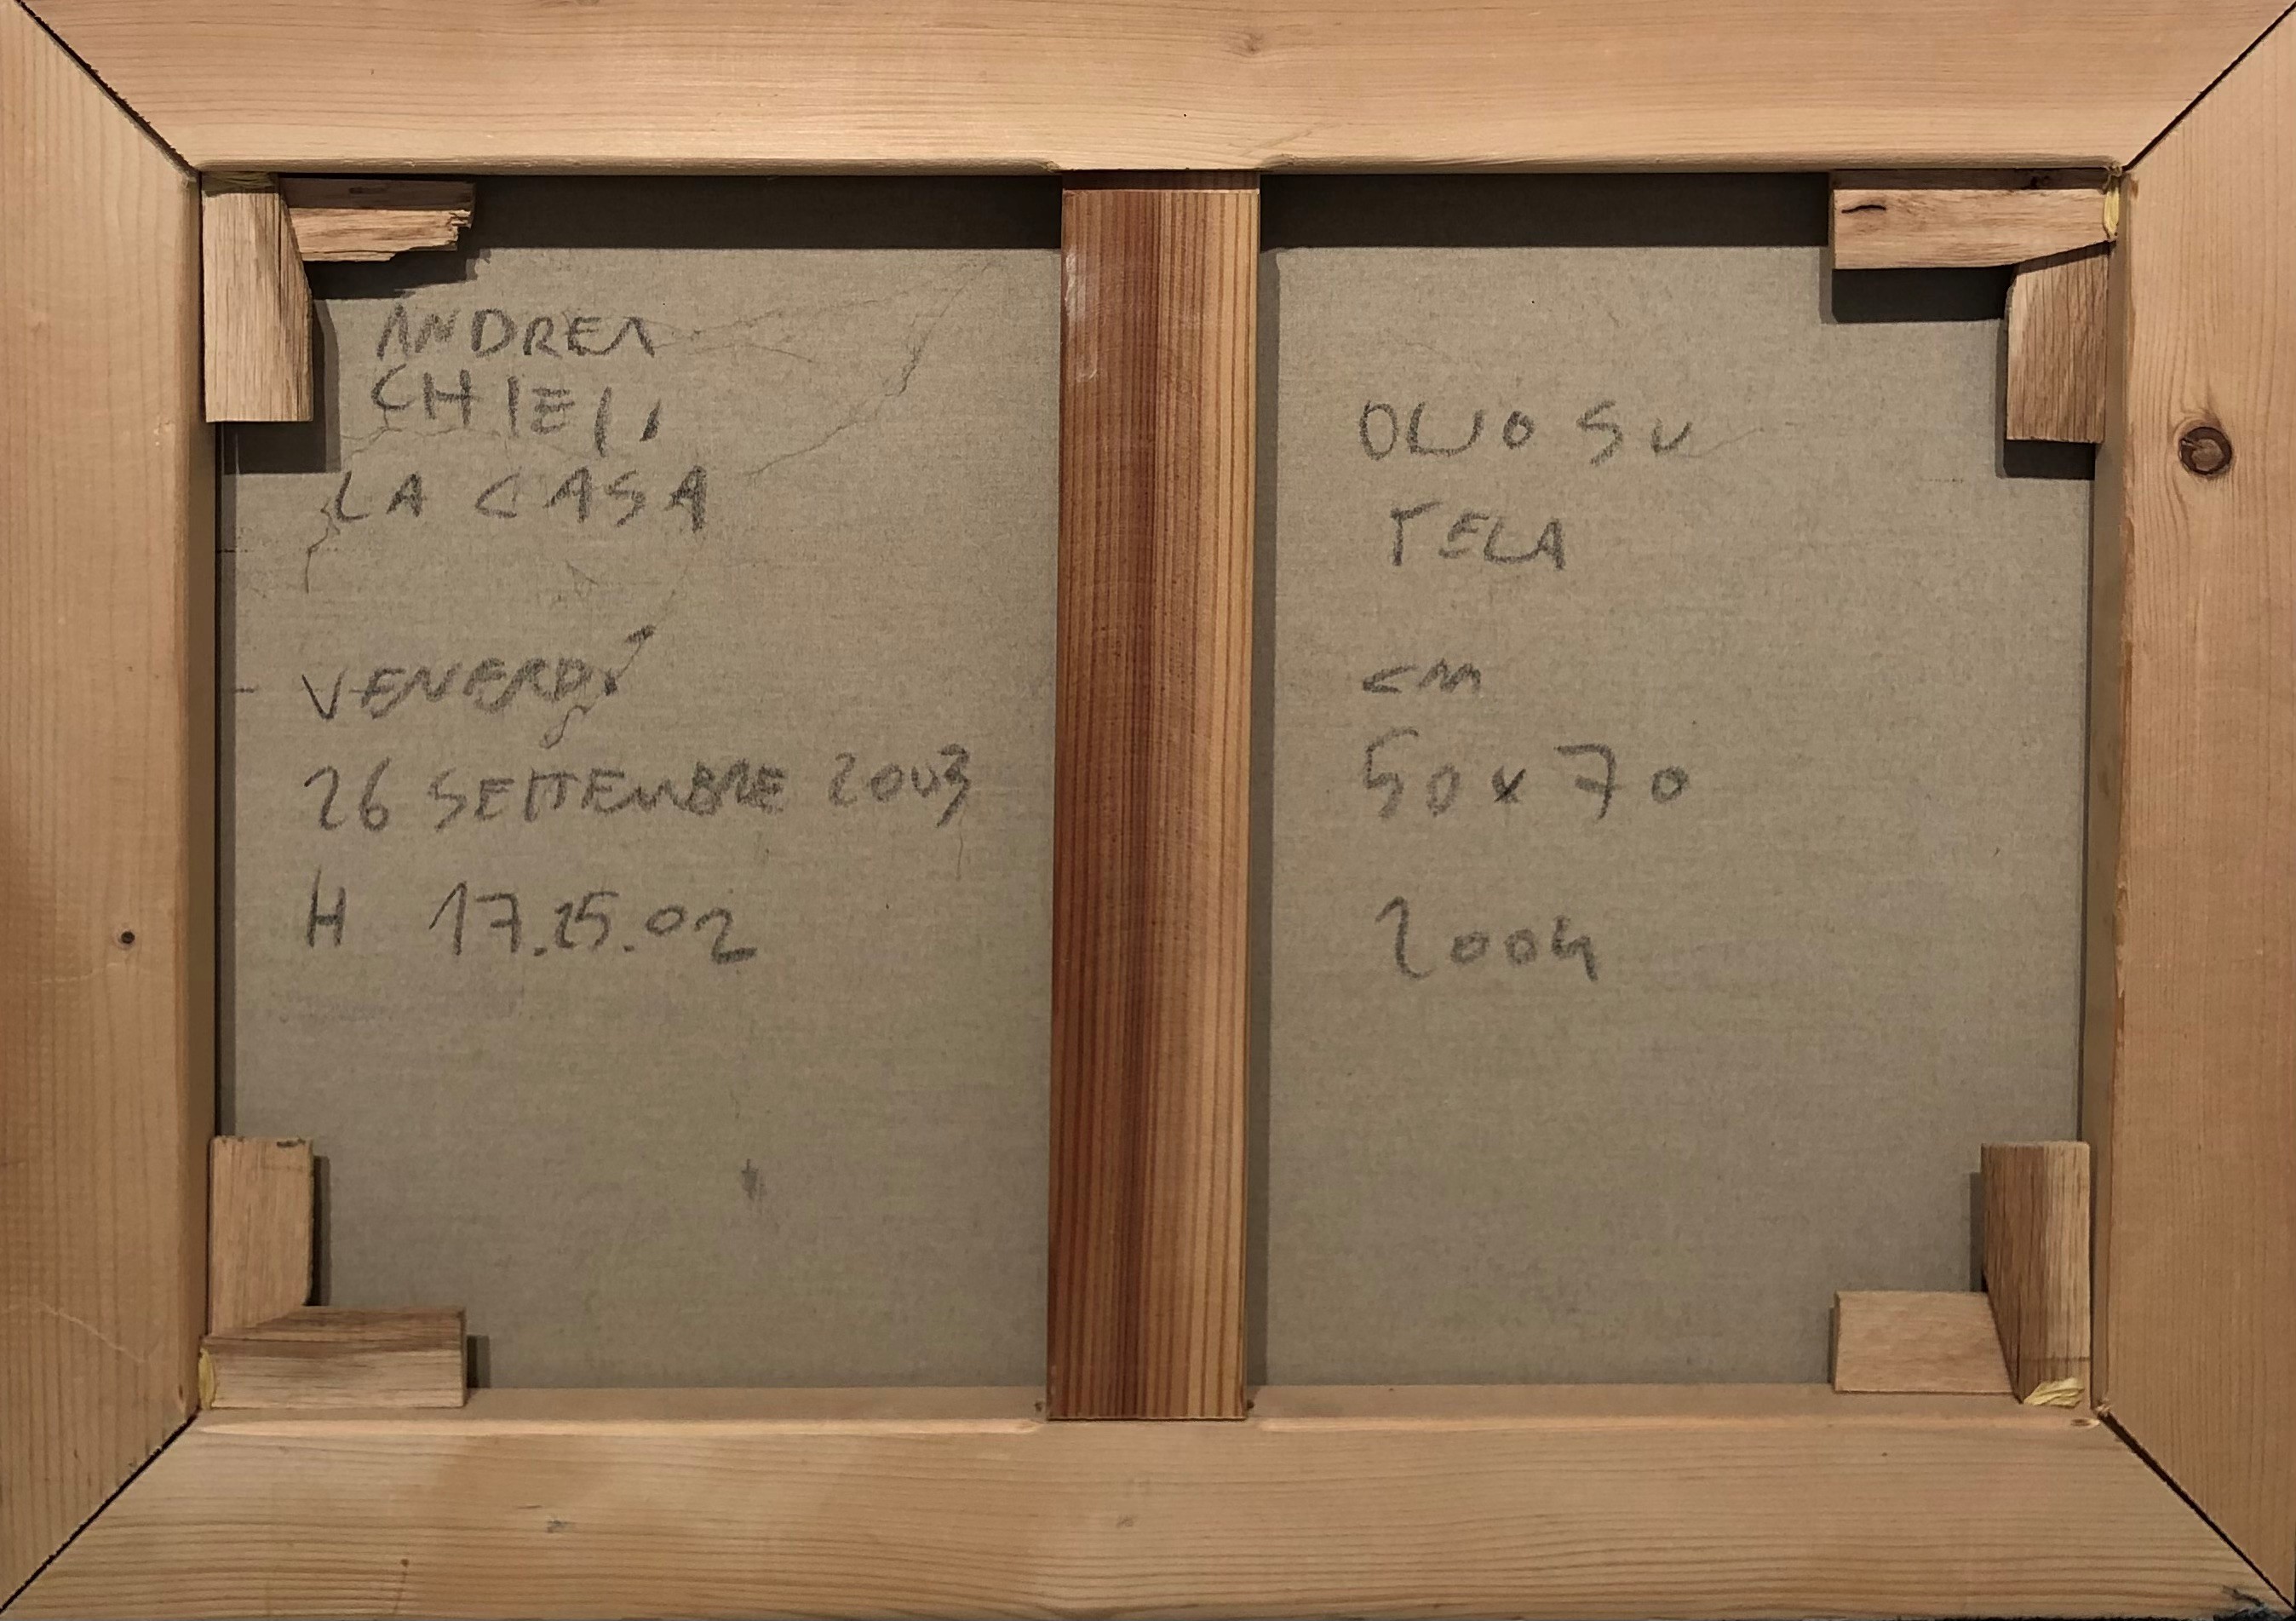 ANDREA
CHIESI,
LA CASA
VENERDÌ
26 SETTEMBRE 2003
H 17.25.02
OLIO SU
TELA
cm
50x70
2004